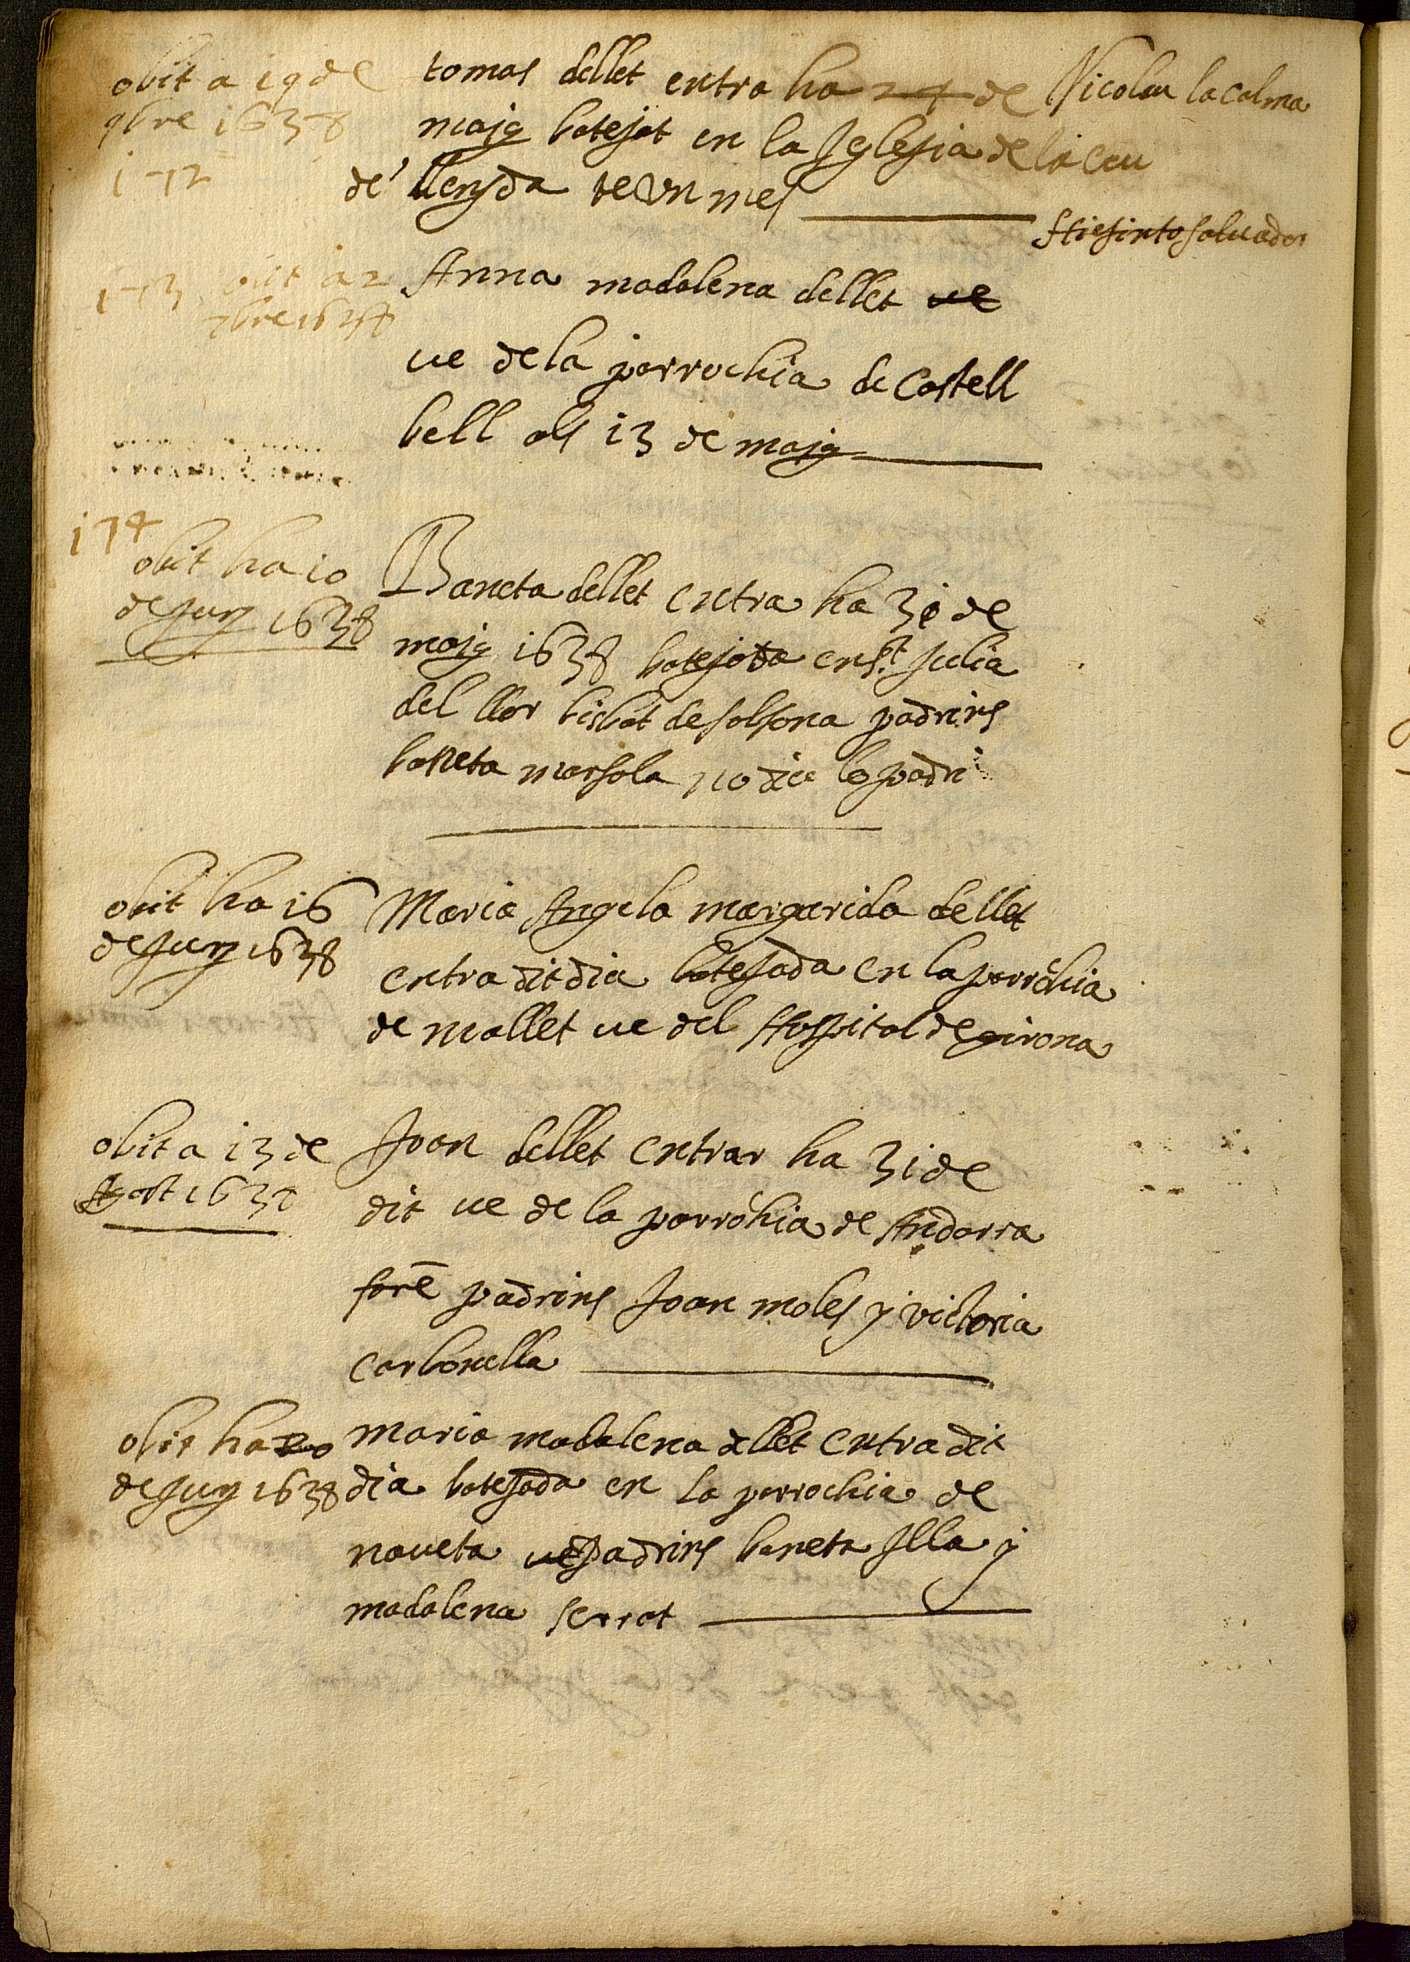 obit a 19 de
9bre 1638
172
tomas dellet entra ha 24 de
maig batejat en la Iglesia de la ceu
de lleryda te vn mes
Nicolau la calma
Hiesinto saluador
173 obit a 2
7bre 1638
Anna madalena dellet ve
ve dela parrochia de Castell
bell als 13 de maig
174
obit ha 10
de Juny 1638
Baneta dellet entra ha 30 de
maig 1638 batejada en st. Julia
del llor bisbat de solsona padrins
baneta marsola no diu lo padri
obit ha 16
de Juny 1638
Maria Angela margarida dellet
entra dit dia batejada en la parrochia
de mallet ve del Hospital de girona
obit a 13 de
Agost 1638
Joan dellet entrar ha 31 de
dit ve de la parrohia de Andorra
forē padrins Joan moles y victoria
carbonella
obit ha 20
de Juny 1638
maria madalena dellet entra dit
dia batejada en la parrochia de
naveta ve padrins baneta Illa y
madalena serrat